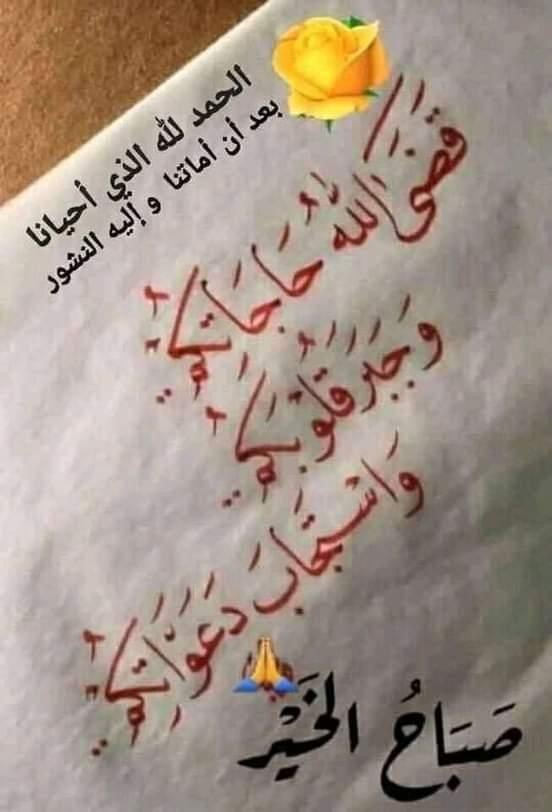 الحمد لله الذي أحيانا
بعد أن أماتنا و إليه النشور
قَضَى اللهُ حَاجَاتِكُمْ..
وَجَبَرَ قُلُوبَكُمْ..
وَاسْتَجَابَ دَعَوَاتِكُمْ..
صَبَاحُ الخَيْر